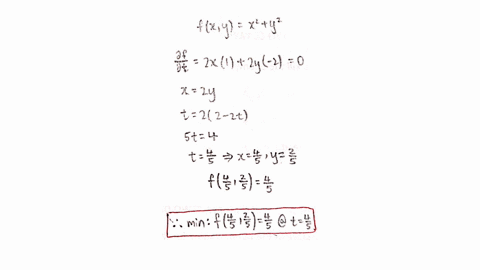 f(x,y) = x²+y²
∂f/∂t = 2x(1)+2y(-2)=0
x=2y
t=2(2-2t)
5t=4
t=4/5 ⇒ x=4/5, y=2/5
f(4/5, 2/5)=4/5
∴ min: f(4/5, 2/5)=4/5 @ t=4/5